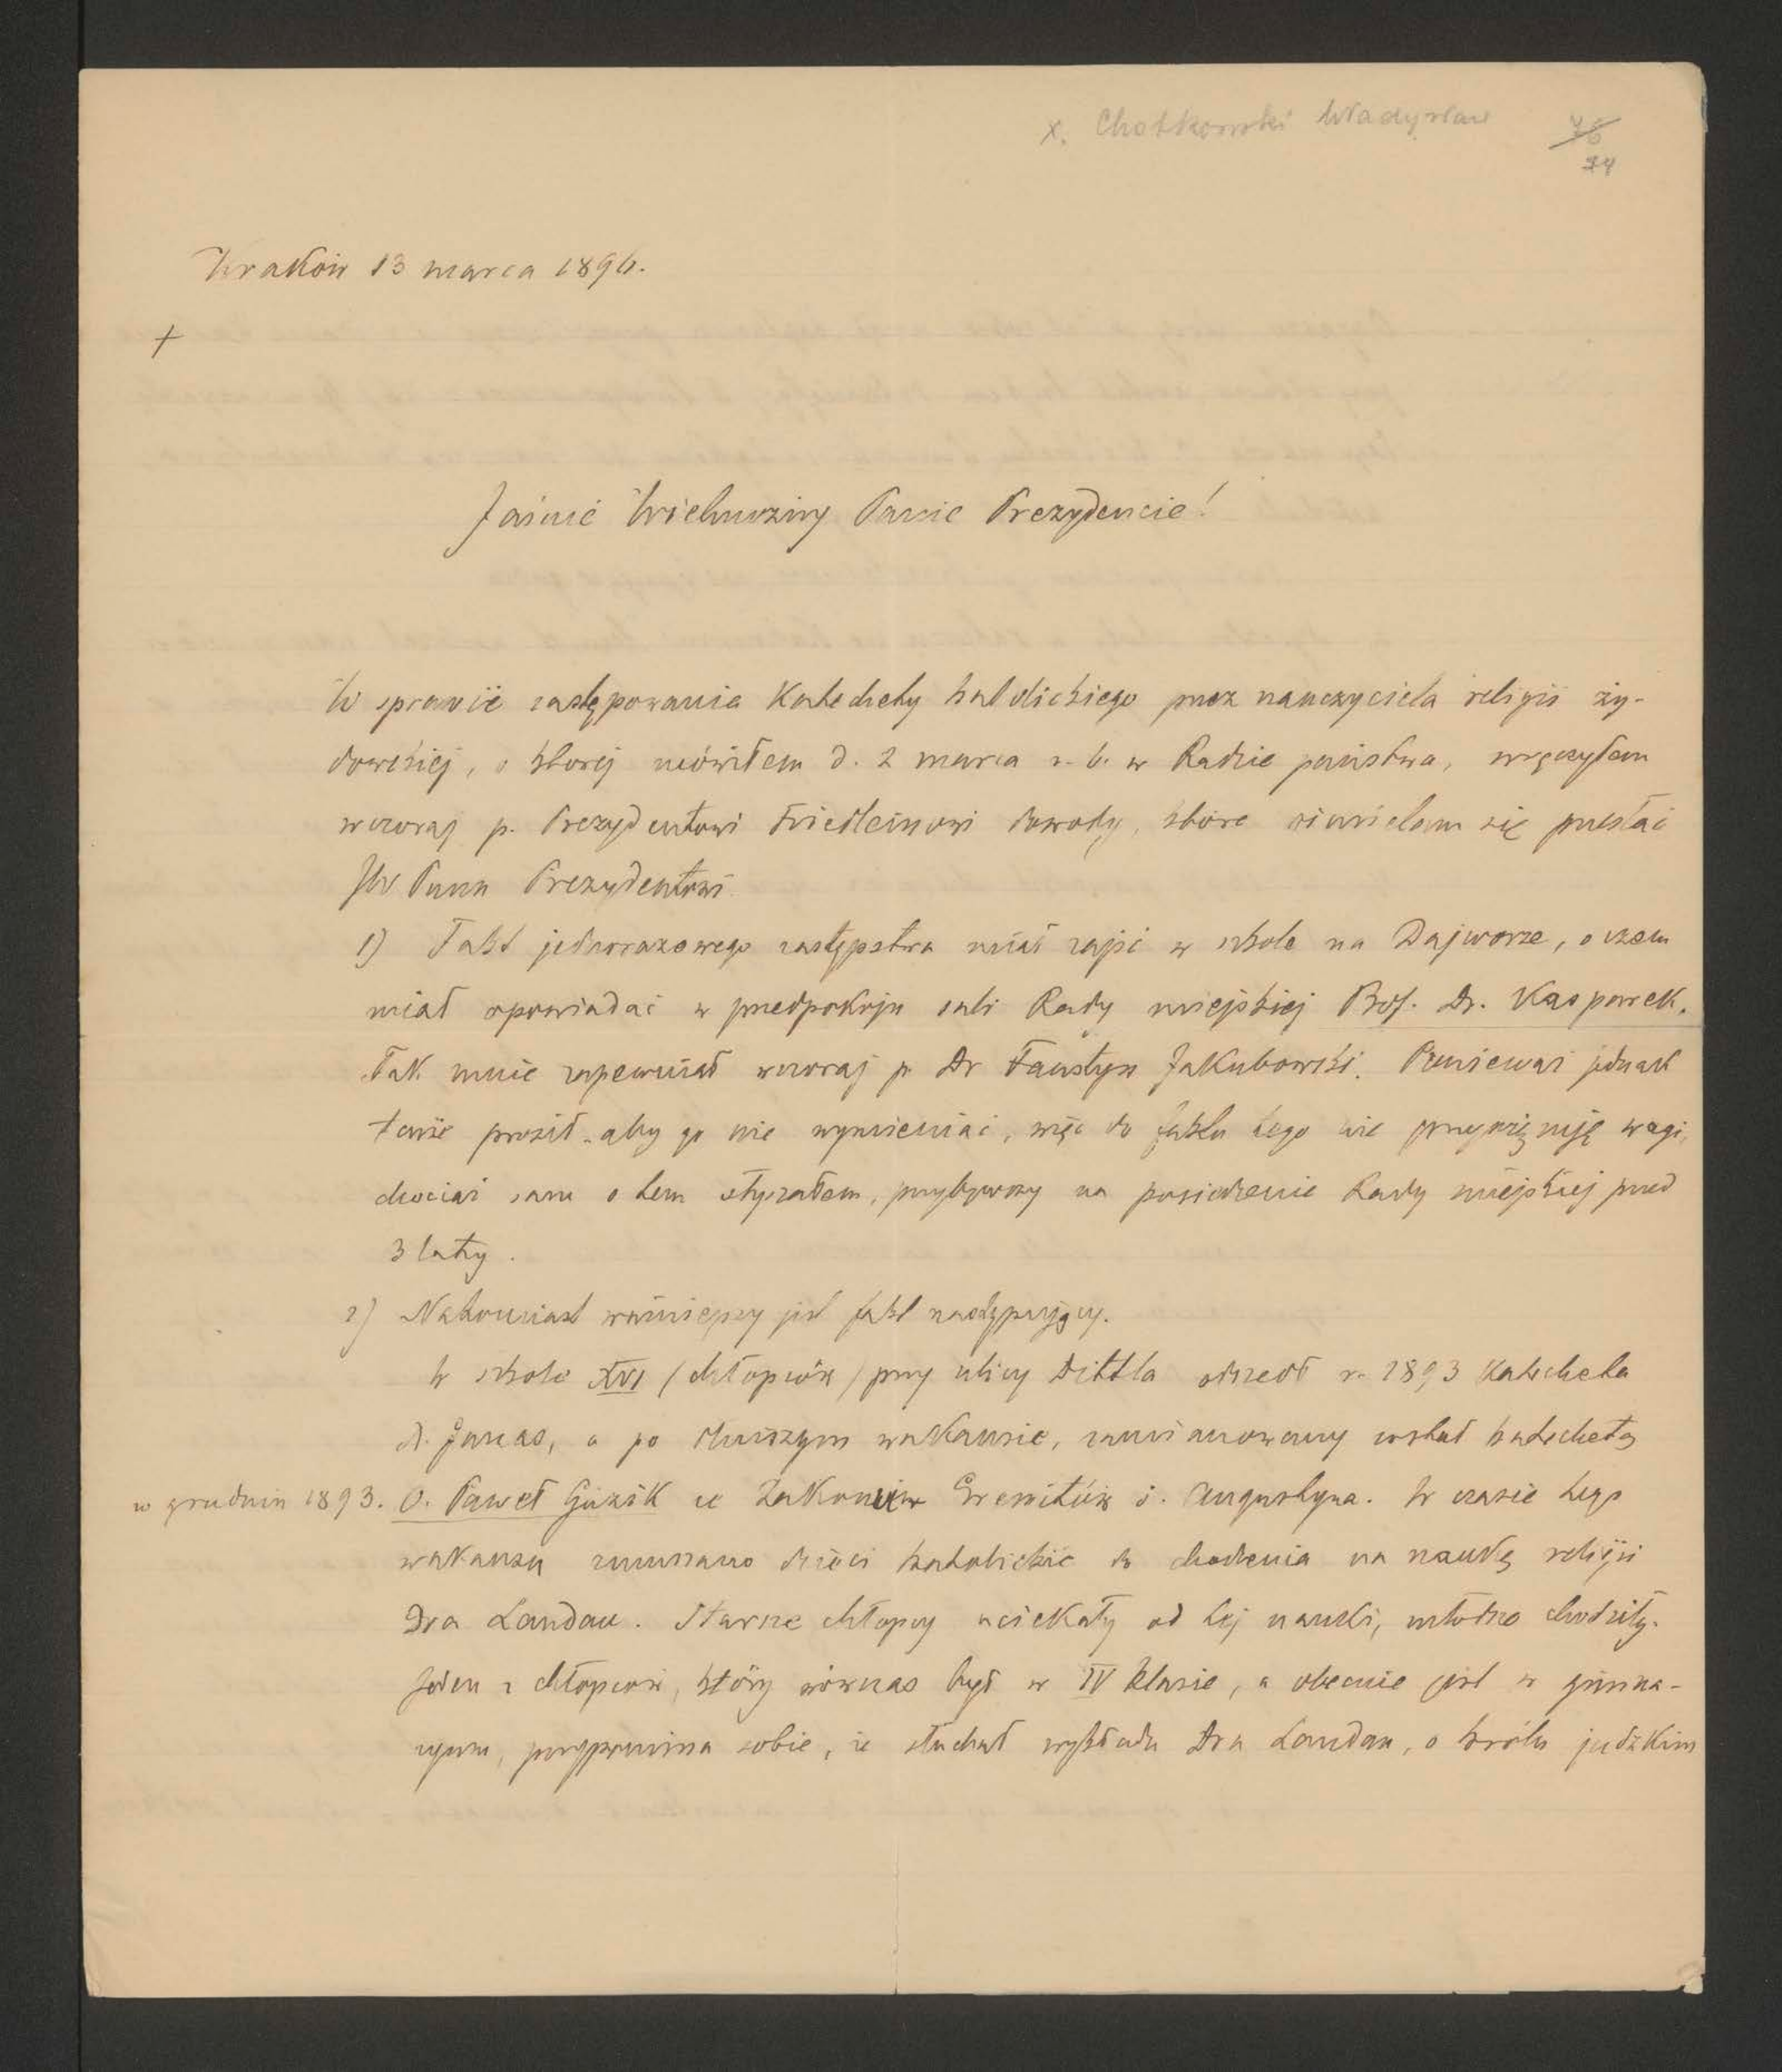 x. Chotkowski Władysław
74
Kraków 13 marca 1896.
+
Jaśnie Wielmożny Panie Prezydencie!
W sprawie zastępowania Katechety katolickiego przez nauczyciela religii ży-
dowskiej, o której mówiłem d. 2 marca r. b. w Radzie państwa, wręczyłem
wczoraj p. Prezydentowi Friedleinowi dowody, które ośmielam się przesłać
JW Panu Prezydentowi
1) Fakt jednorazowego zastępstwa miał zajść w szkole na Dajworze, o czem
miał opowiadać w przedpokoju sali Rady miejskiej Prof. Dr. Kasparek.
Tak mnie zapewniał wczoraj p Dr Faustyn Jakubowski. Ponieważ jednak
tenże prosił aby go nie wymieniać, więc do faktu tego nie przywięzuję wagi,
chociaż sam o tem słyszałem, przybywszy na posiedzenie Rady miejskiej przed
3 laty.
2) Natomiast ważniejszy jest fakt następujący.
W szkole XVI (chłopców) przy ulicy Dittla odszedł r. 1893 Katecheta
X. Junas, a po dłuższym wakansie, zamianowany został katechetą
w grudniu 1893. O. Paweł Guzik ze Zakonu Eremitów ś. Augustyna. W czasie tego
wakansu zmuszano dzieci katolickie do chodzenia na naukę religii
Dra Landau. Starsze chłopcy uciekały od tej nauki, młodsze chodziły.
Jeden z chłopców, który wówczas był w IV klasie, a obecnie jest w gimna-
zyum, przypomina sobie, że słuchał wykładu Dra Landau, o królu judzkim